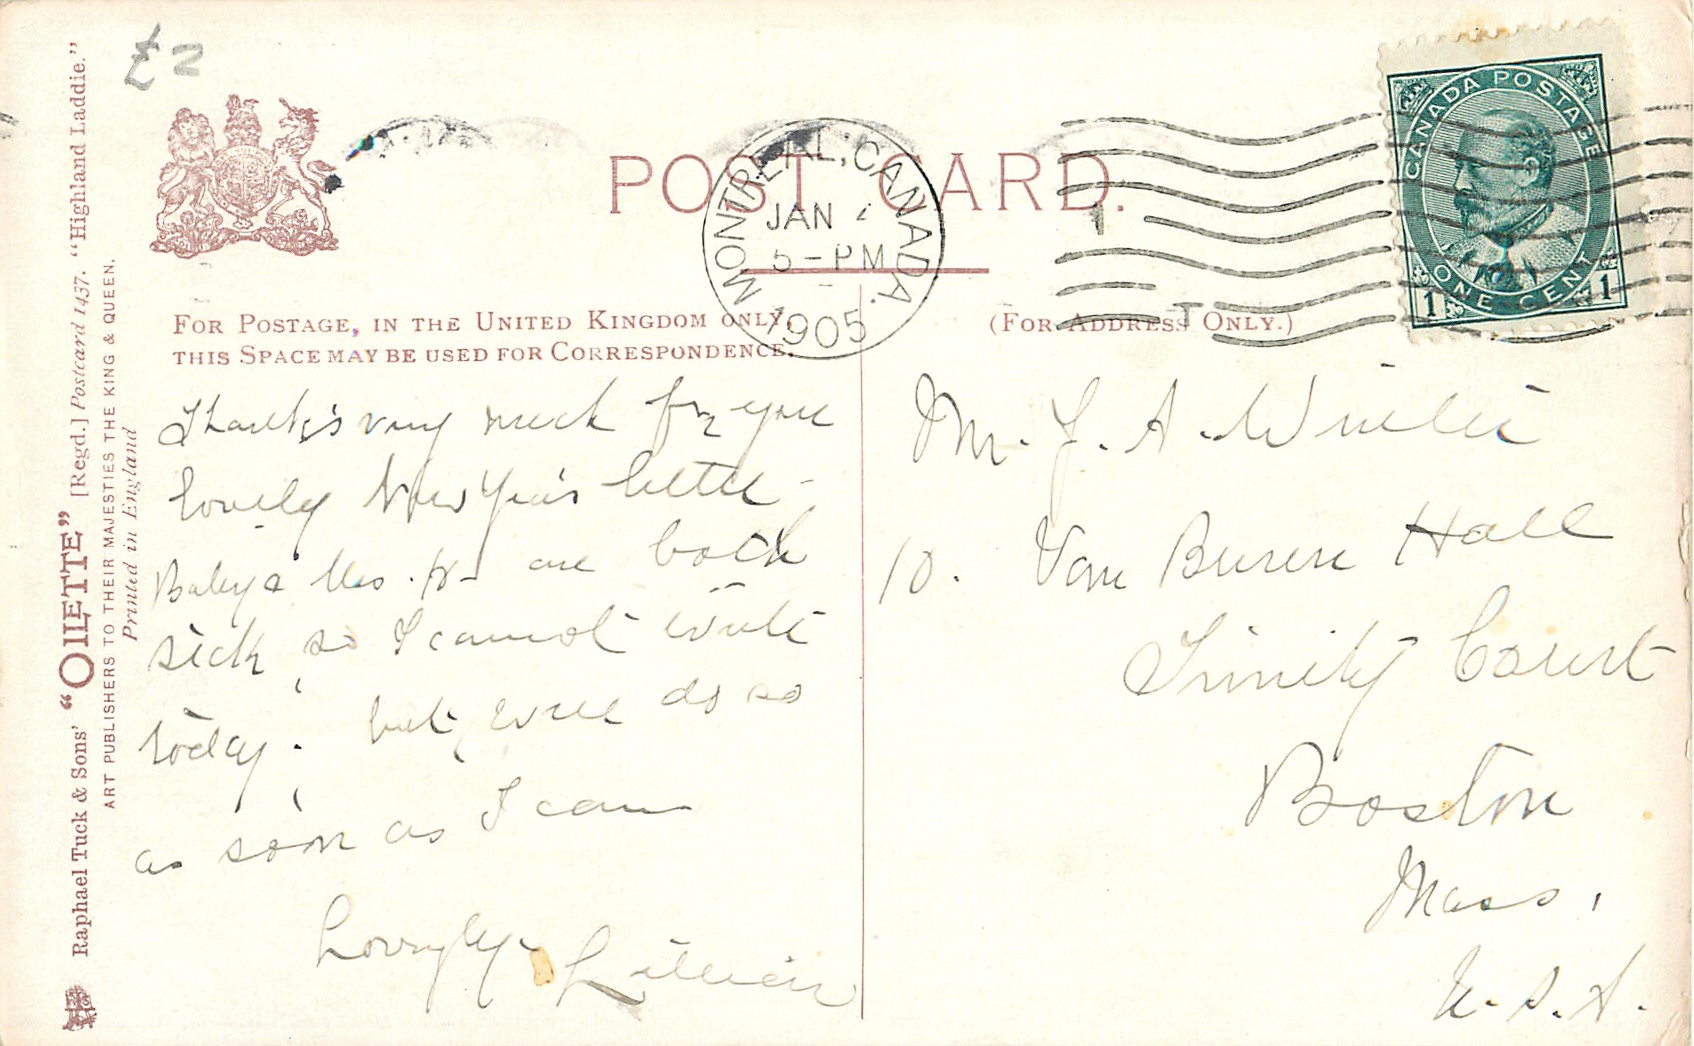 £2
POST CARD.
MONTREAL, CANADA.
JAN
5-PM
1905
CANADA POSTAGE
ONE CENT
1 1
FOR POSTAGE, IN THE UNITED KINGDOM ONLY,
THIS SPACE MAY BE USED FOR CORRESPONDENCE.
(FOR ADDRESS ONLY.)
Thanks very much for your
lovely New Year's letter.
Baby & Mrs. are both
sick, so I cannot write
today, but will do so
as soon as I can
Lovingly Lillian
Mr. J. A. Winter
10. Van Buren Hall
Trinity Court
Boston
Mass,
U.S.A.
Raphael Tuck & Sons' "OILETTE" [Regd.] Postcard 1437. "Highland Laddie."
ART PUBLISHERS TO THEIR MAJESTIES THE KING & QUEEN.
Printed in England